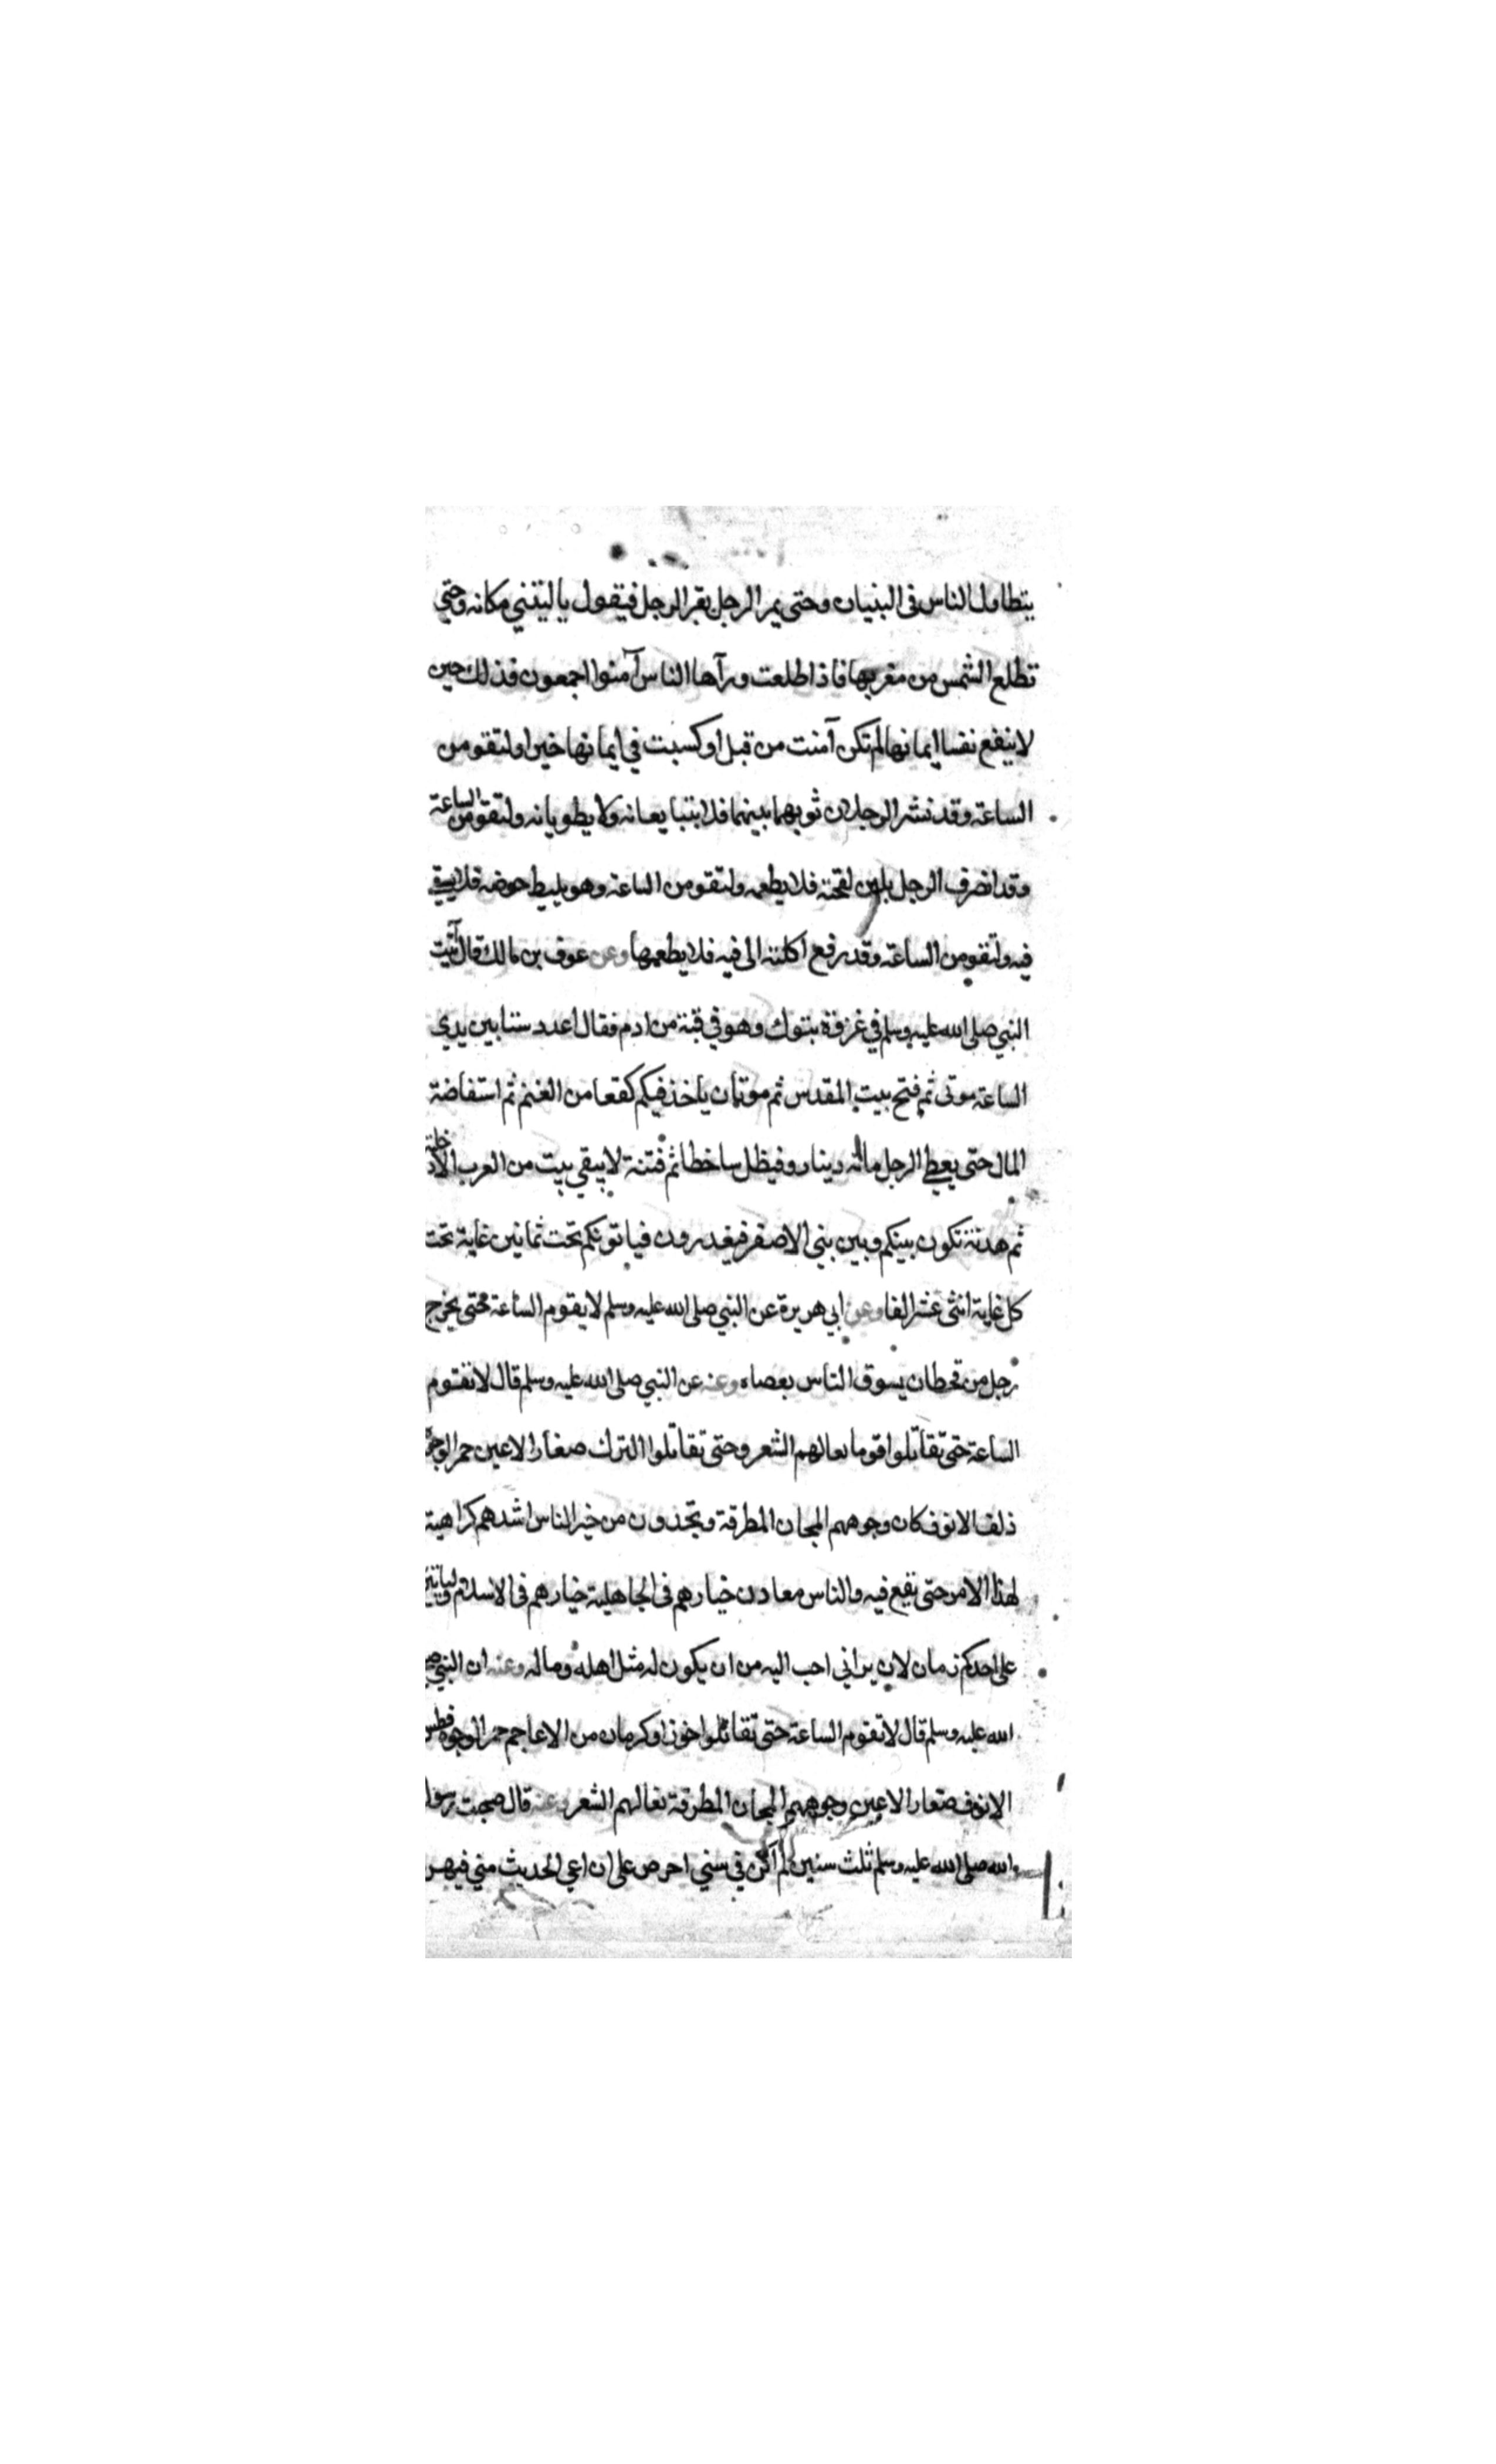 يتطاول الناس في البنيان وحتى يمر الرجل بقبر الرجل فيقول يا ليتني مكانه وحتي
تطلع الشمس من مغربها فاذا طلعت ورآها الناس آمنوا اجمعون فذلك حين
لا ينفع نفسا ايمانها لم تكن آمنت من قبل او كسبت في ايمانها خيرا ولتقومن
الساعة وقد نشر الرجلان ثوبهما بينهما فلا يتبايعانه ولا يطويانه ولتقومن الساعة
وقد انصرف الرجل بلبن لقحته فلا يطعمه ولتقومن الساعة وهو يليط حوضه فلا يسقي
فيه ولتقومن الساعة وقد رفع اكلته الى فيه فلا يطعمها وعن عوف بن مالك قال أتيت
النبي صلى الله عليه وسلم في غزوة تبوك وهو في قبة من ادم فقال اعدد ستا بين يدي
الساعة موتى ثم فتح بيت المقدس ثم موتان ياخذ فيكم كقعا من الغنم ثم استفاضة
المال حتى يعطي الرجل مائه دينار وفيظل ساخطا ثم فتنة لا يبقي بيت من العرب الا دخلته
ثم هدنة تكون بينكم وبين بني الاصفر فيغدرون فياتونكم تحت ثمانين غاية تحت
كل غاية اثني عشر الفا وعن ابي هريرة عن النبي صلى الله عليه وسلم لا يقوم الساعة حتى يخرج
رجل من قحطان يسوق الناس بعصاه وعنه عن النبي صلى الله عليه وسلم قال لا تقوم
الساعة حتى تقاتلوا قوما نعالهم الشعر وحتى تقاتلوا الترك صغار الاعين حمر الوجوه
ذلف الانوف كان وجوههم المجان المطرقة وتجدون من خير الناس اشدهم كراهية
لهذا الامر حتى يقع فيه والناس معادن خيارهم في الجاهلية خيارهم في الاسلام ولياتين
على احدكم زمان لان يراني احب اليه من ان يكون له مثل اهله وماله وعنه ان النبي صلى
الله عليه وسلم قال لا تقوم الساعة حتى تقاتلوا خوزا وكرمان من الاعاجم حمر الوجوه فطس
الانوف صغار الاعين وجوههم المجان المطرقة نعالهم الشعر وعنه قال صحبت رسول
الله صلى الله عليه وسلم ثلث سنين لم اكن في سني احرص على ان اعي الحديث مني فيهن